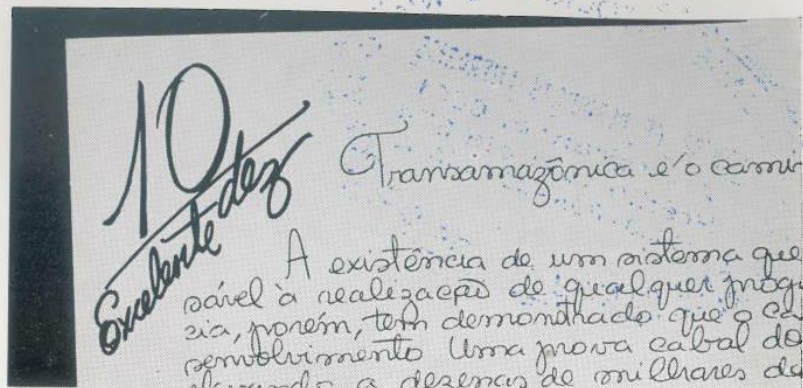 10
dez
Excelente
Transamazônica é o
A existência de um sistema que
sável à realização de qualquer
zia, porém, tem demonstrado que o
senvolvimento Uma prova cabal do
a dezenas de milhares